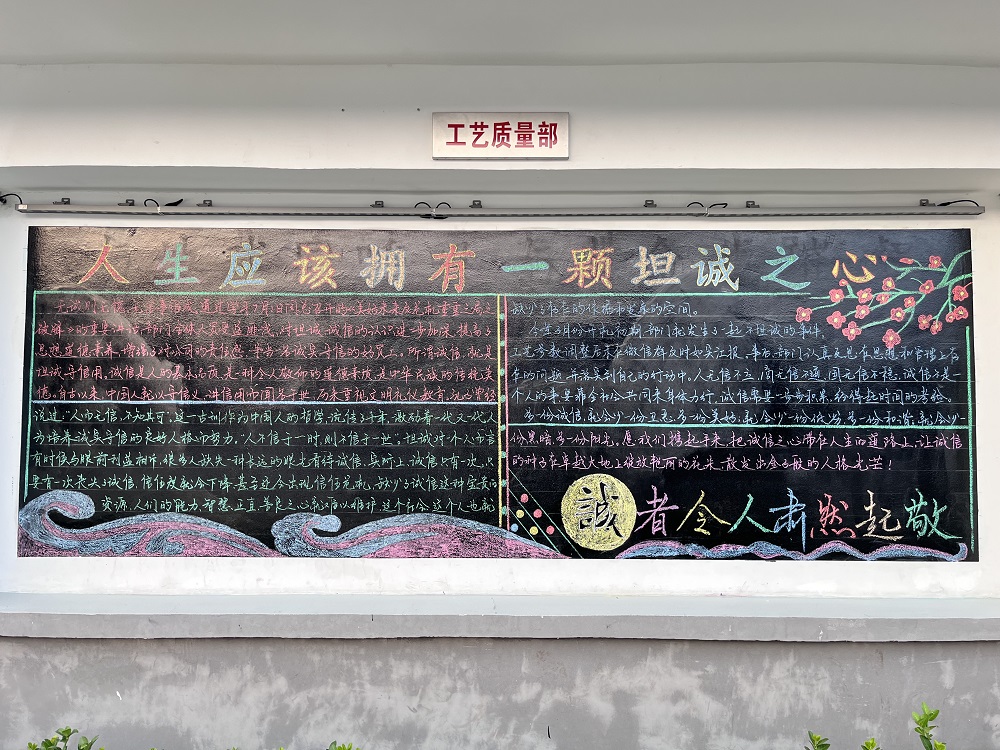 工艺质量部
人生应该拥有一颗坦诚之心
思想道德素养,增强了对公司的责任感,争当名诚实守信的好员工。所谓诚信,就是
坦诚守信用。诚信是人的美永名片,是一种令人敬仰的道德素质,是中华民族的传统美
德。自古以来,中国人就以守信义、讲信用而闻名于世,历来重视文明礼仪教育,孔子曾经
说过:“人而无信,不知其可”,这一古训作为中国人的哲学,流传了千年,激励着一代又一代人
为培养诚实守信的良好人格而努力。“人不信于一时,则不信于一世”,坦诚对个人而言
有时候与眼前利益相许,很多人缺失一种长远的眼光看待诚信,实际上,诚信只有一次,只
要有一次丧失了诚信,信任度就会下降,甚至还会出现信任危机,缺少了诚信这种宝贵的
资源,人们的能力、智慧、正直、善良之心就难以维护,这个社会、这个人也就
缺少了伟仁的价格和发展的空间。
今年3月份开机初期,部门就发生了一起不坦诚的事件,
工艺参数调整后未在微信群及时如实汇报,事后,部门认真反思在思想和管理上存
在的问题,并落实到自己的行动中。人无信不立,商无信不通,国无信不稳。诚信不是一
个人的事,要靠全社会共同来身体力行,诚信需要一步步积累,经得起时间的考验。
多一份诚信,就会少一份卫意,多一份美好,就会少一份低劣,多一份和谐,就会少一
份黑暗,多一份阳光。愿我们携起手来,把诚信之心带在人生的道路上,让诚信
的种子在卓越大地上绽放艳丽的花朵,散发出金子般的人格光芒!
誠者令人肃然起敬